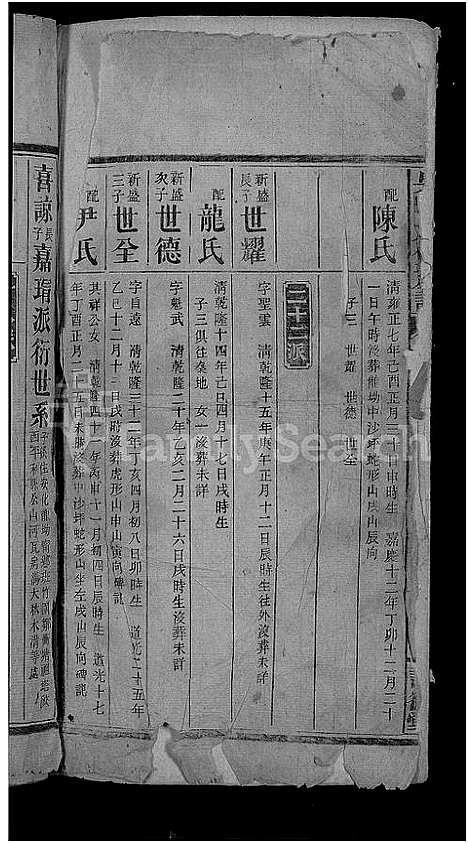 配 陳氏
清雍正七年己酉正月二十日申時生 嘉慶十二年丁卯十二月二十
一日午時沒葬能幼中沙坪蛇形山戌山辰向
子三 世耀 世德 世全
二十二派
新盛長子 世耀
字聖雲 清乾隆十五年庚午正月十二日辰時生往外沒葬未詳
配 龍氏
清乾隆十四年己巳四月十七日戌時生
子三俱往桑地 女一沒葬未詳
新盛次子 世德
字魁武 清乾隆二十年乙亥二月二十六日戌時生沒葬未詳
新盛三子 世全
字自遠 清乾隆三十二年丁亥四月初八日卯時生 道光二十五年
乙巳十二月十二日戌時沒葬虎形山申山寅向碑記
配 尹氏
其祥公女 清乾隆四十一年丙申十一月初四日辰時生 道光十七
年丁酉正月二十五日未時沒葬中沙坪蛇形山坐左戌山辰向碑記
喜諒長子嘉瑨派衍世系
FamilySearch